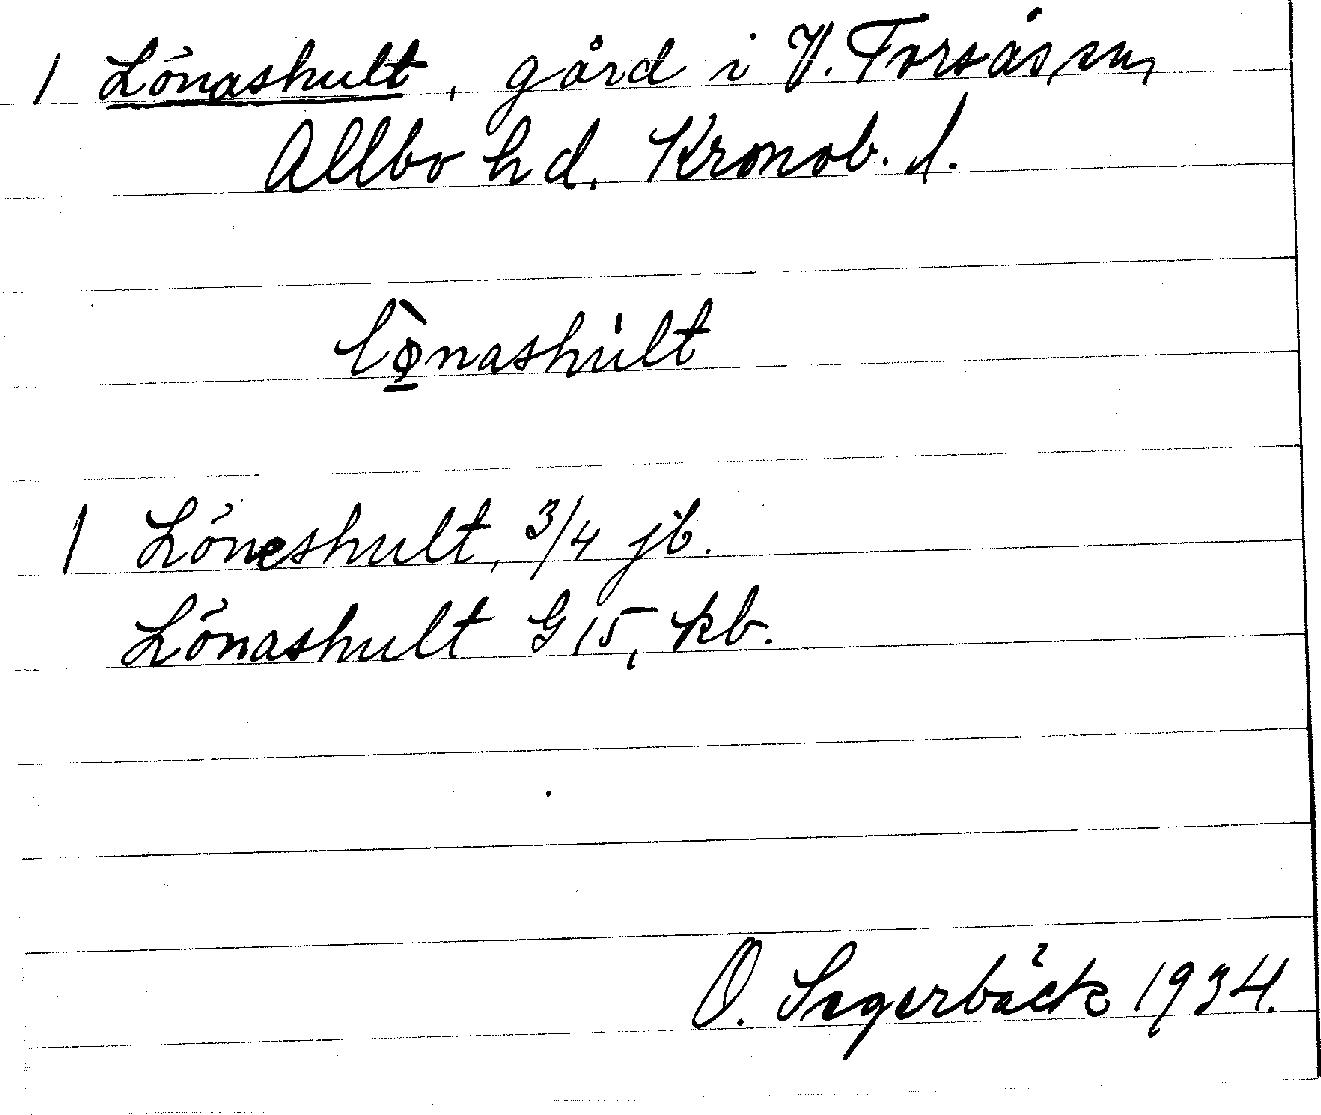 1 Lönashult, gård i V. Torsås sn,
Allbo hd. Kronob. l.
lø̀nashúlt
1 Löneshult, 3/4 jb.
Lönashult G 15, kb.
O. Segerbäck 1934.